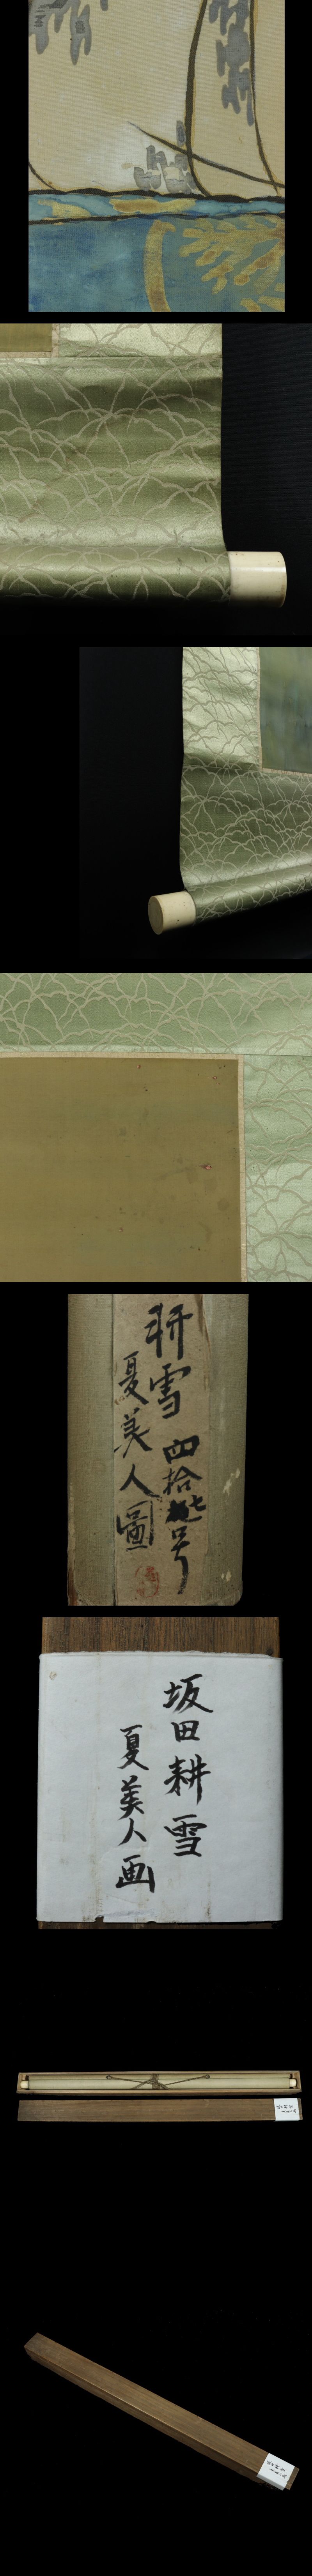 耕雪 四拾七号
夏美人圖
坂田耕雪
夏美人画